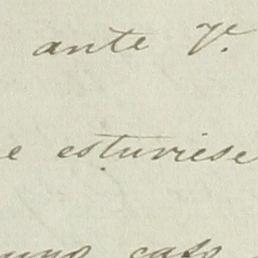 ante V.
e estuviese
uno caso